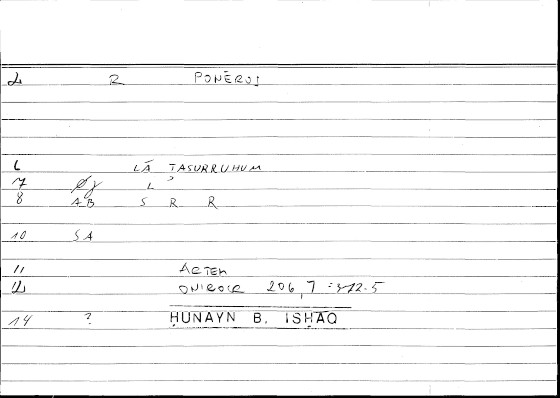 2 R PONĒROS
6 LĀ TASURRUHUM
7 L ʾ
8 AB S R R
10 SA
11 ARTEM
12 ONIROCR 206,7 = 412.5
14 ? ḤUNAYN B. ISḤĀQ